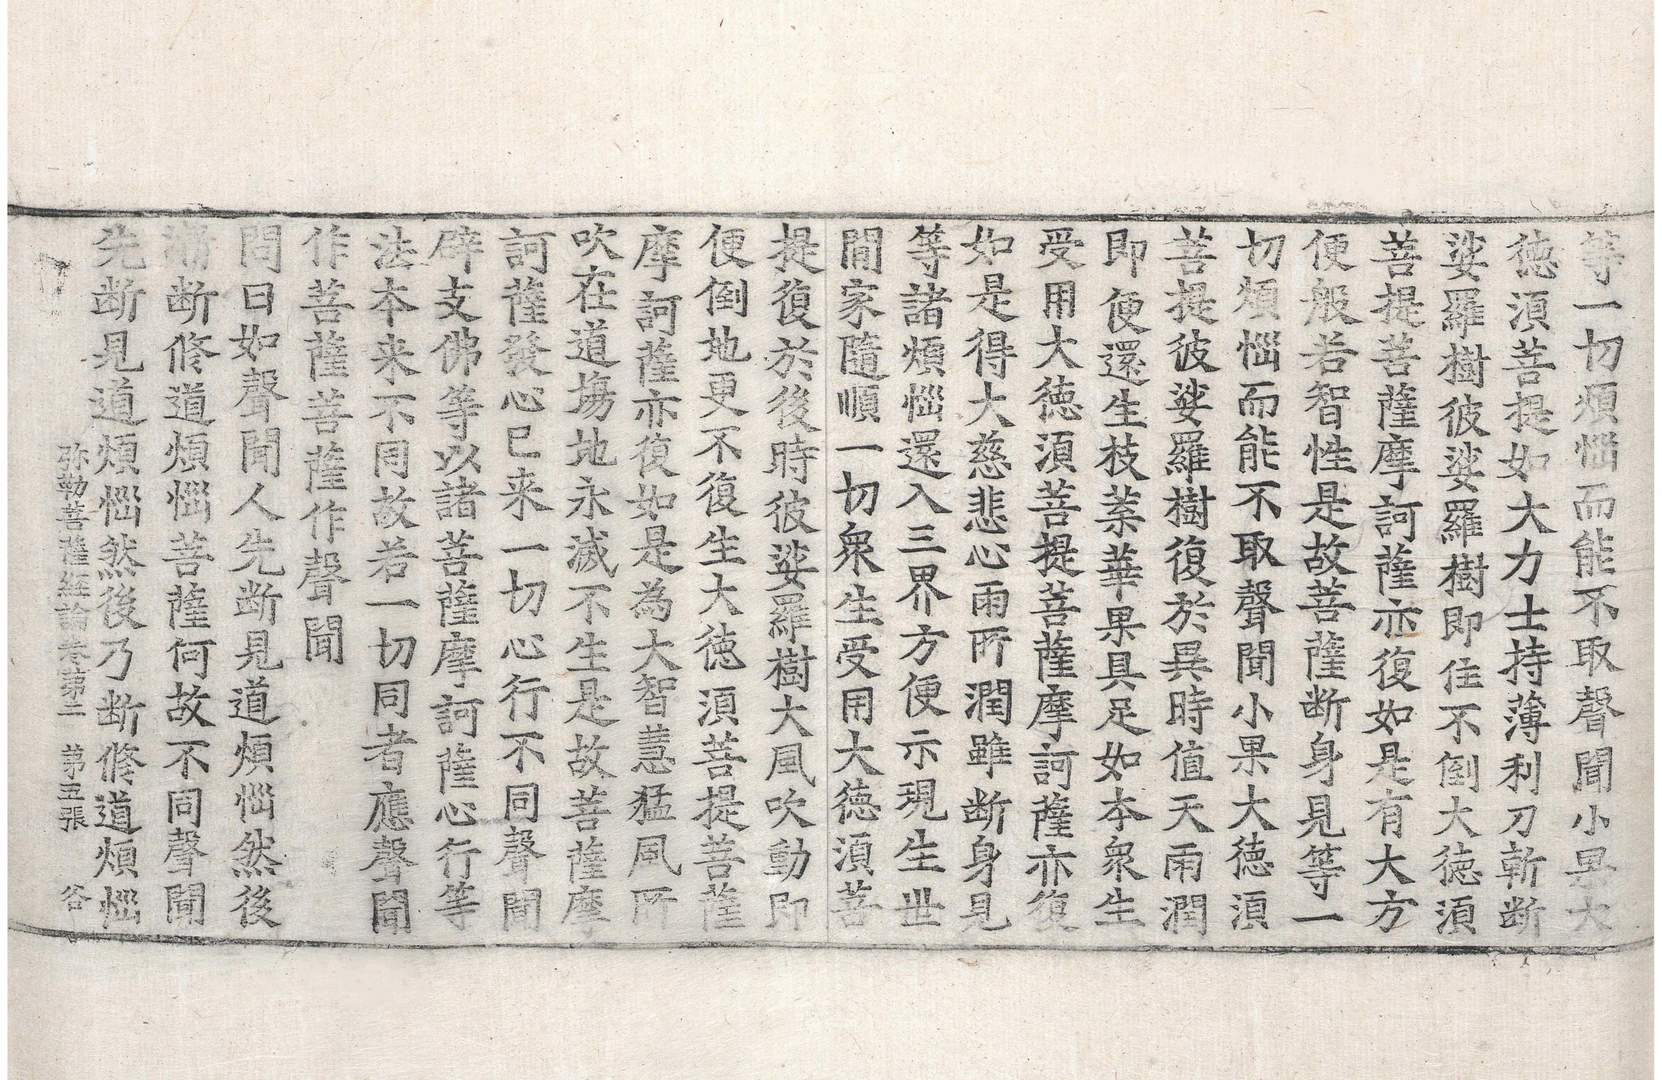 等一切煩惱而能不取聲聞小果大
德須菩提如大力士持薄利刀斬断
娑羅樹彼娑羅樹即住不倒大德須
菩提菩薩摩訶薩亦復如是有大方
便般若智性是故菩薩断身見等一
切煩惱而能不取聲聞小果大德須
菩提彼娑羅樹復於異時值天雨潤
即便還生枝葉華果具足如本衆生
受用大德須菩提菩薩摩訶薩亦復
如是得大慈悲心雨所潤雖断身見
等諸煩惱還入三界方便示現生世
間家隨順一切衆生受用大德須菩
提復於後時彼娑羅樹大風吹動即
便倒地更不復生大德須菩提菩薩
摩訶薩亦復如是為大智慧猛風所
吹在道場地永滅不生是故菩薩摩
訶薩發心已来一切心行不同聲聞
辟支佛等以諸菩薩摩訶薩心行等
法本来不同故若一切同者應聲聞
作菩薩菩薩作聲聞
問曰如聲聞人先断見道煩惱然後
漸断修道煩惱菩薩何故不同聲聞
先断見道煩惱然後乃断修道煩惱
弥勒菩薩經論卷第二 第五張 谷